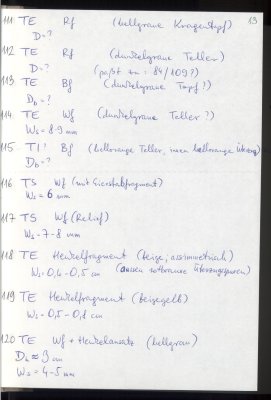 13
111 TE Rf (hellgraue Kragentopf)
D = ?
112 TE Rf (dunkelgraue Teller)
D = ? (passt zu: 84/109?)
113 TE Bf (dunkelgraue Topf?)
Db = ?
114 TE Wf (dunkelgraue Teller?)
Ws = 8-9 mm
115 TI? Bf (hellorange Teller, innen hellorange Überzug)
Db = ?
116 TS Wf (mit Eierstabfragment)
Ws = 6 mm
117 TS Wf (Relief)
Ws = 7-8 mm
118 TE Henkelfragment (beige, assimetrisch)
Ws = 0,4-0,5 cm (aussen rotbraune Überzugspuren)
119 TE Henkelfragment (beigegelb)
Ws = 0,5-0,8 cm
120 TE Wf + Henkelansatz (hellgrau)
≈ 9 cm
Ws = 4-5 mm